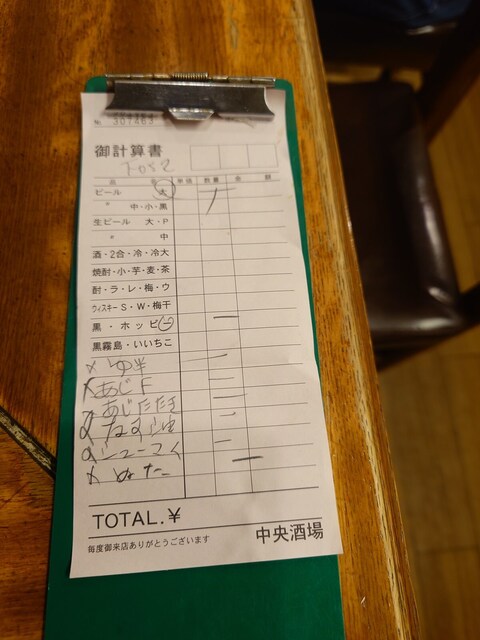 № 307463
御計算書
1052
品 名 単価 数量 金 額
ビール 大
〃 中・小・黒
生ビール 大・P
〃 中
酒・2合・冷・冷大
焼酎・小・芋・麦・茶
酎・ラ・レ・梅・ウ
ウィスキーS・W・梅干
黒・ホッピー
黒霧島・いいちこ
ゆ半
あじF
あじたたき
シューマイ
ぬた
TOTAL.¥
毎度御来店ありがとうございます 中央酒場